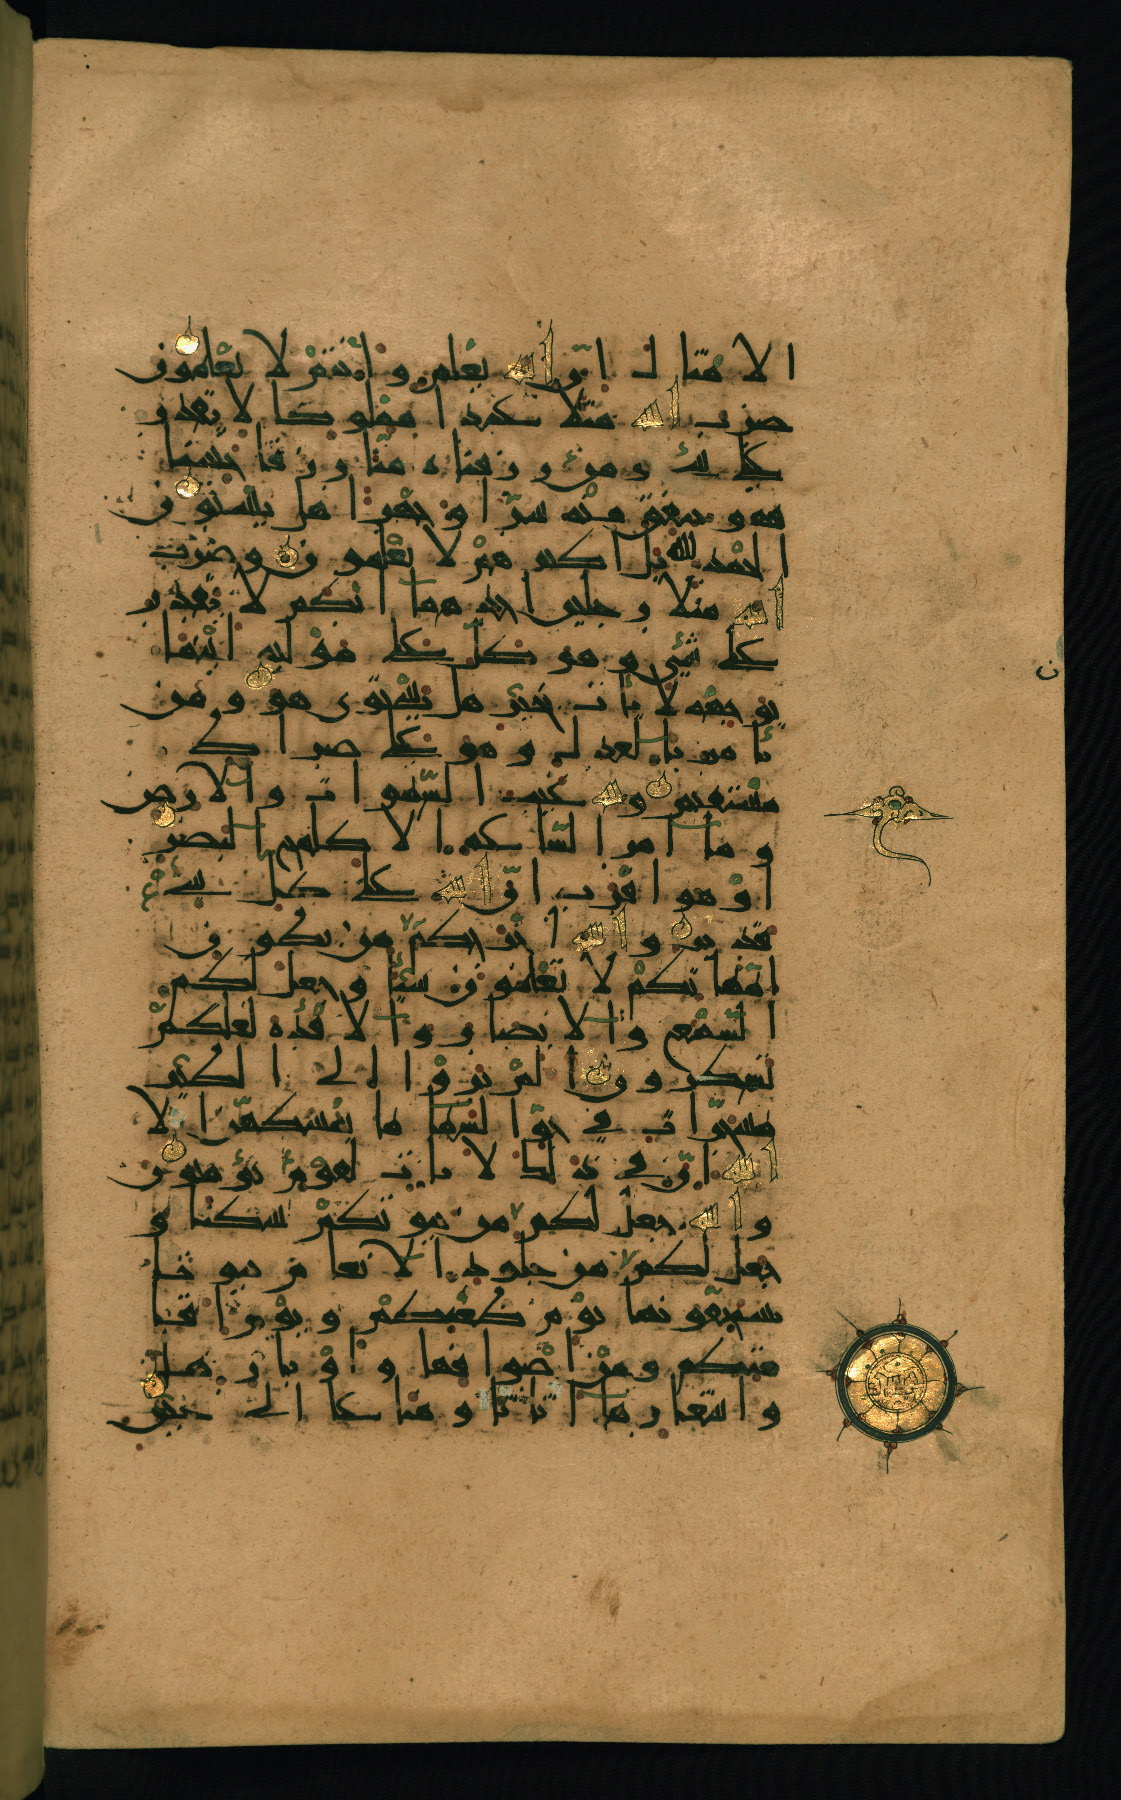 الامثال ان الله يعلم وانتم لا تعلمون
ضرب الله مثلا عبدا مملوكا لا يقدر
على شيء ومن رزقناه منا رزقا حسنا
فهو ينفق منه سرا وجهرا هل يستون
الحمد لله بل اكثرهم لا يعلمون وضرب
الله مثلا رجلين احدهما ابكم لا يقدر
على شيء وهو كل على موليه اينما
يوجهه لا يات بخير هل يستوى هو ومن
يامر بالعدل وهو على صراط
مستقيم ولله غيب السموات والارض
وما امر الساعة الا كلمح البصر
او هو اقرب ان الله على كل شيء
قدير والله اخرجكم من بطون
امهاتكم لا تعلمون شيئا وجعل لكم
السمع والابصار والافئدة لعلكم
تشكرون الم يروا الى الطير
مسخرات في جو السماء ما يمسكهن الا
الله ان في ذلك لايات لقوم يؤمنون
والله جعل لكم من بيوتكم سكنا و
جعل لكم من جلود الانعام بيوتا
تستخفونها يوم ظعنكم ويوم اقا
متكم ومن اصوافها واوبارها
واشعارها اثاثا ومتاعا الى حين
ن